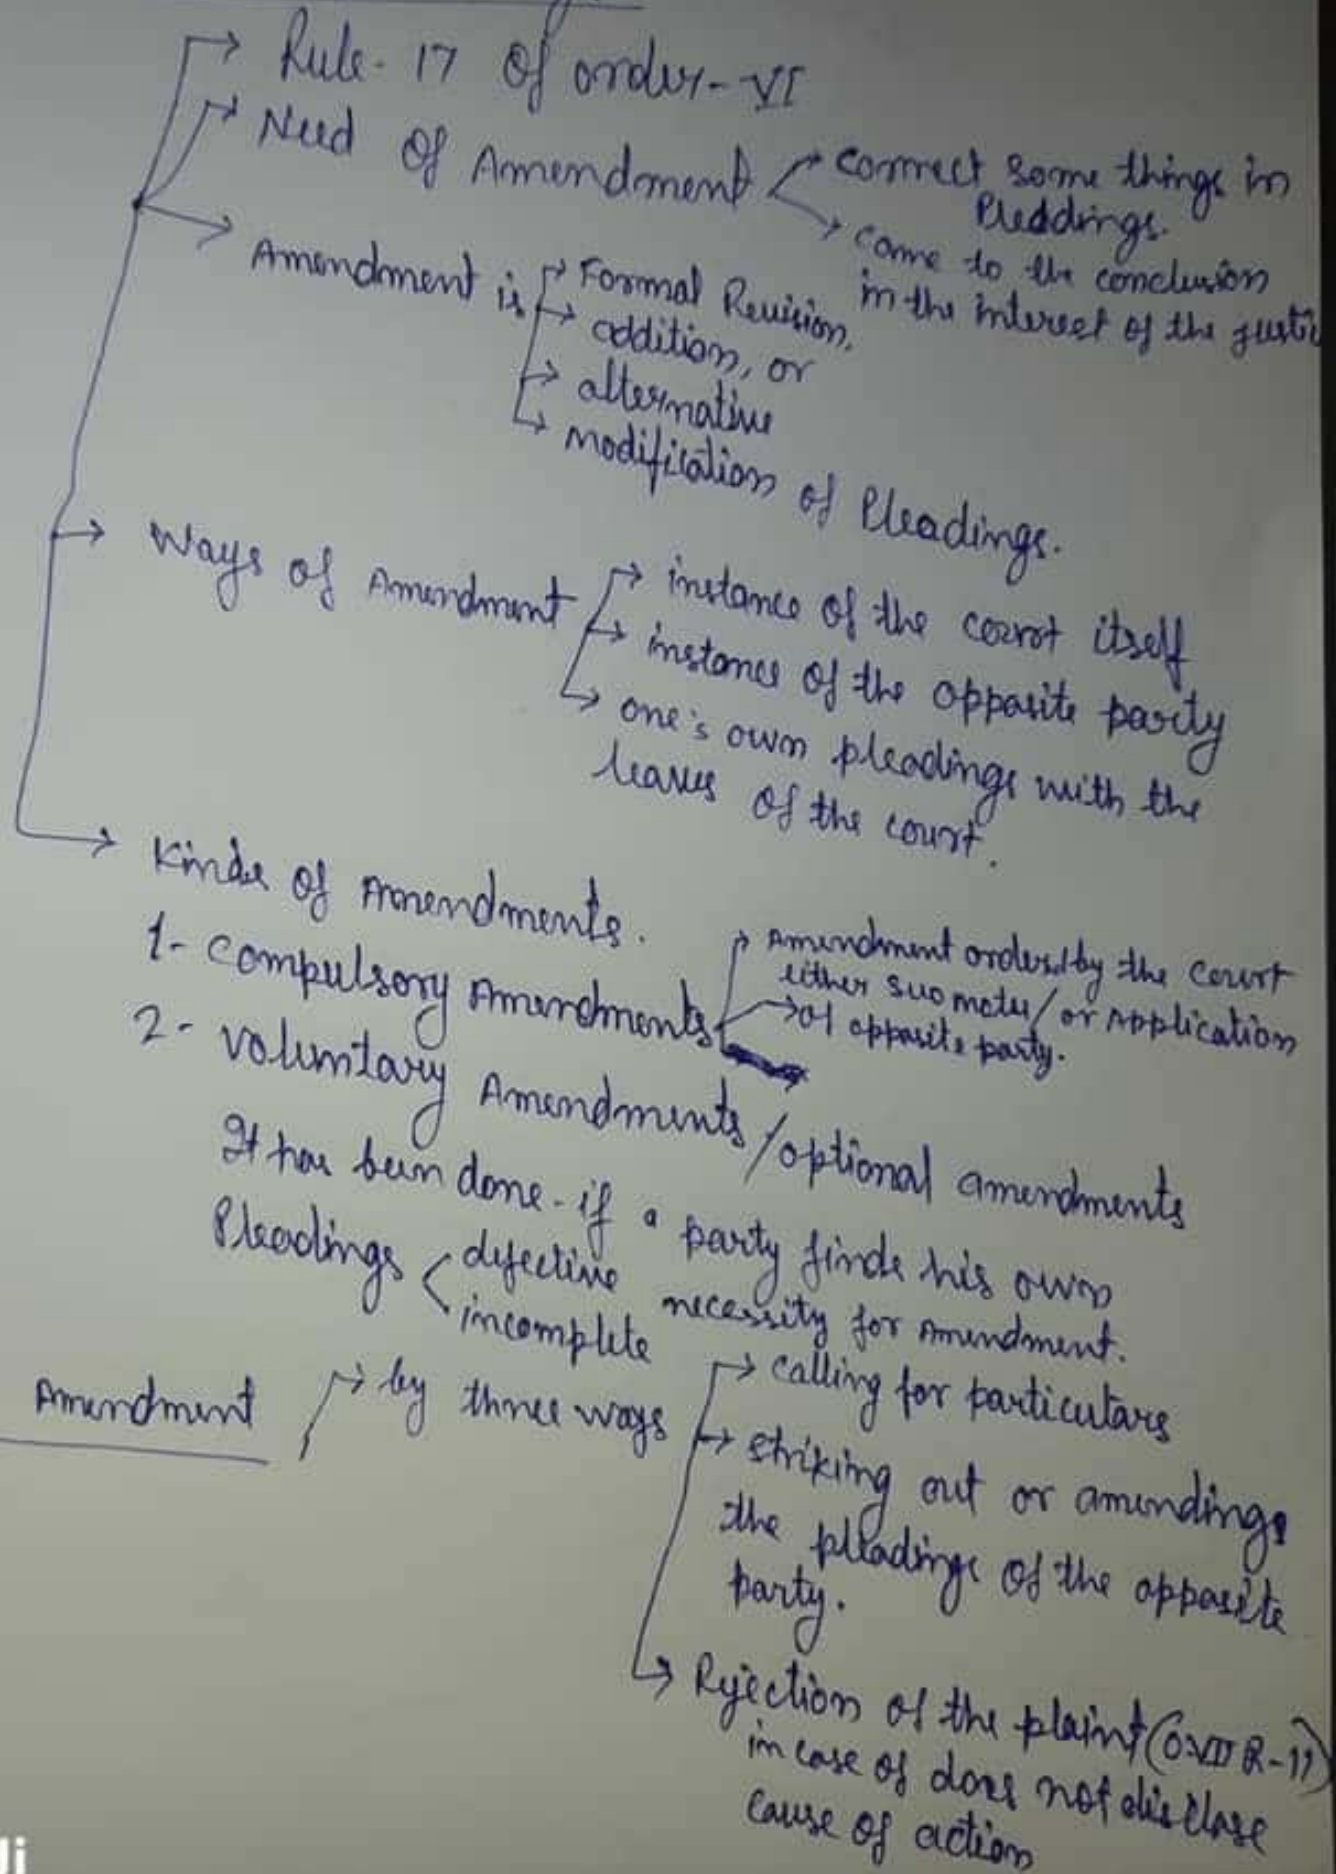 Rule- 17 Of order- VI
Need Of Amendment
correct some things in
Pleddings.
come to the conclusion
in the interest of the justi
Amendment is
Formal Revision,
addition, or
alternative
modification of Pleadings.
Ways of Amendment
instance of the court itself
instance of the opposite party
one's own pleadings with the
leaves of the court.
Kinds of Amendments.
1- Compulsory Amendments
Amendment ordered by the Court
either suo motu/or Application
of opposite party.
2- Voluntary Amendments/optional amendments
It has been done- if a party finds his own
Pleadings
defective
incomplete
necessity for Amendment.
Amendment
by three ways
calling for particulars
striking out or amendings
the pleadings of the opposite
party.
Rejection of the plaint (O.VII R-11)
in case of does not disclose
cause of action